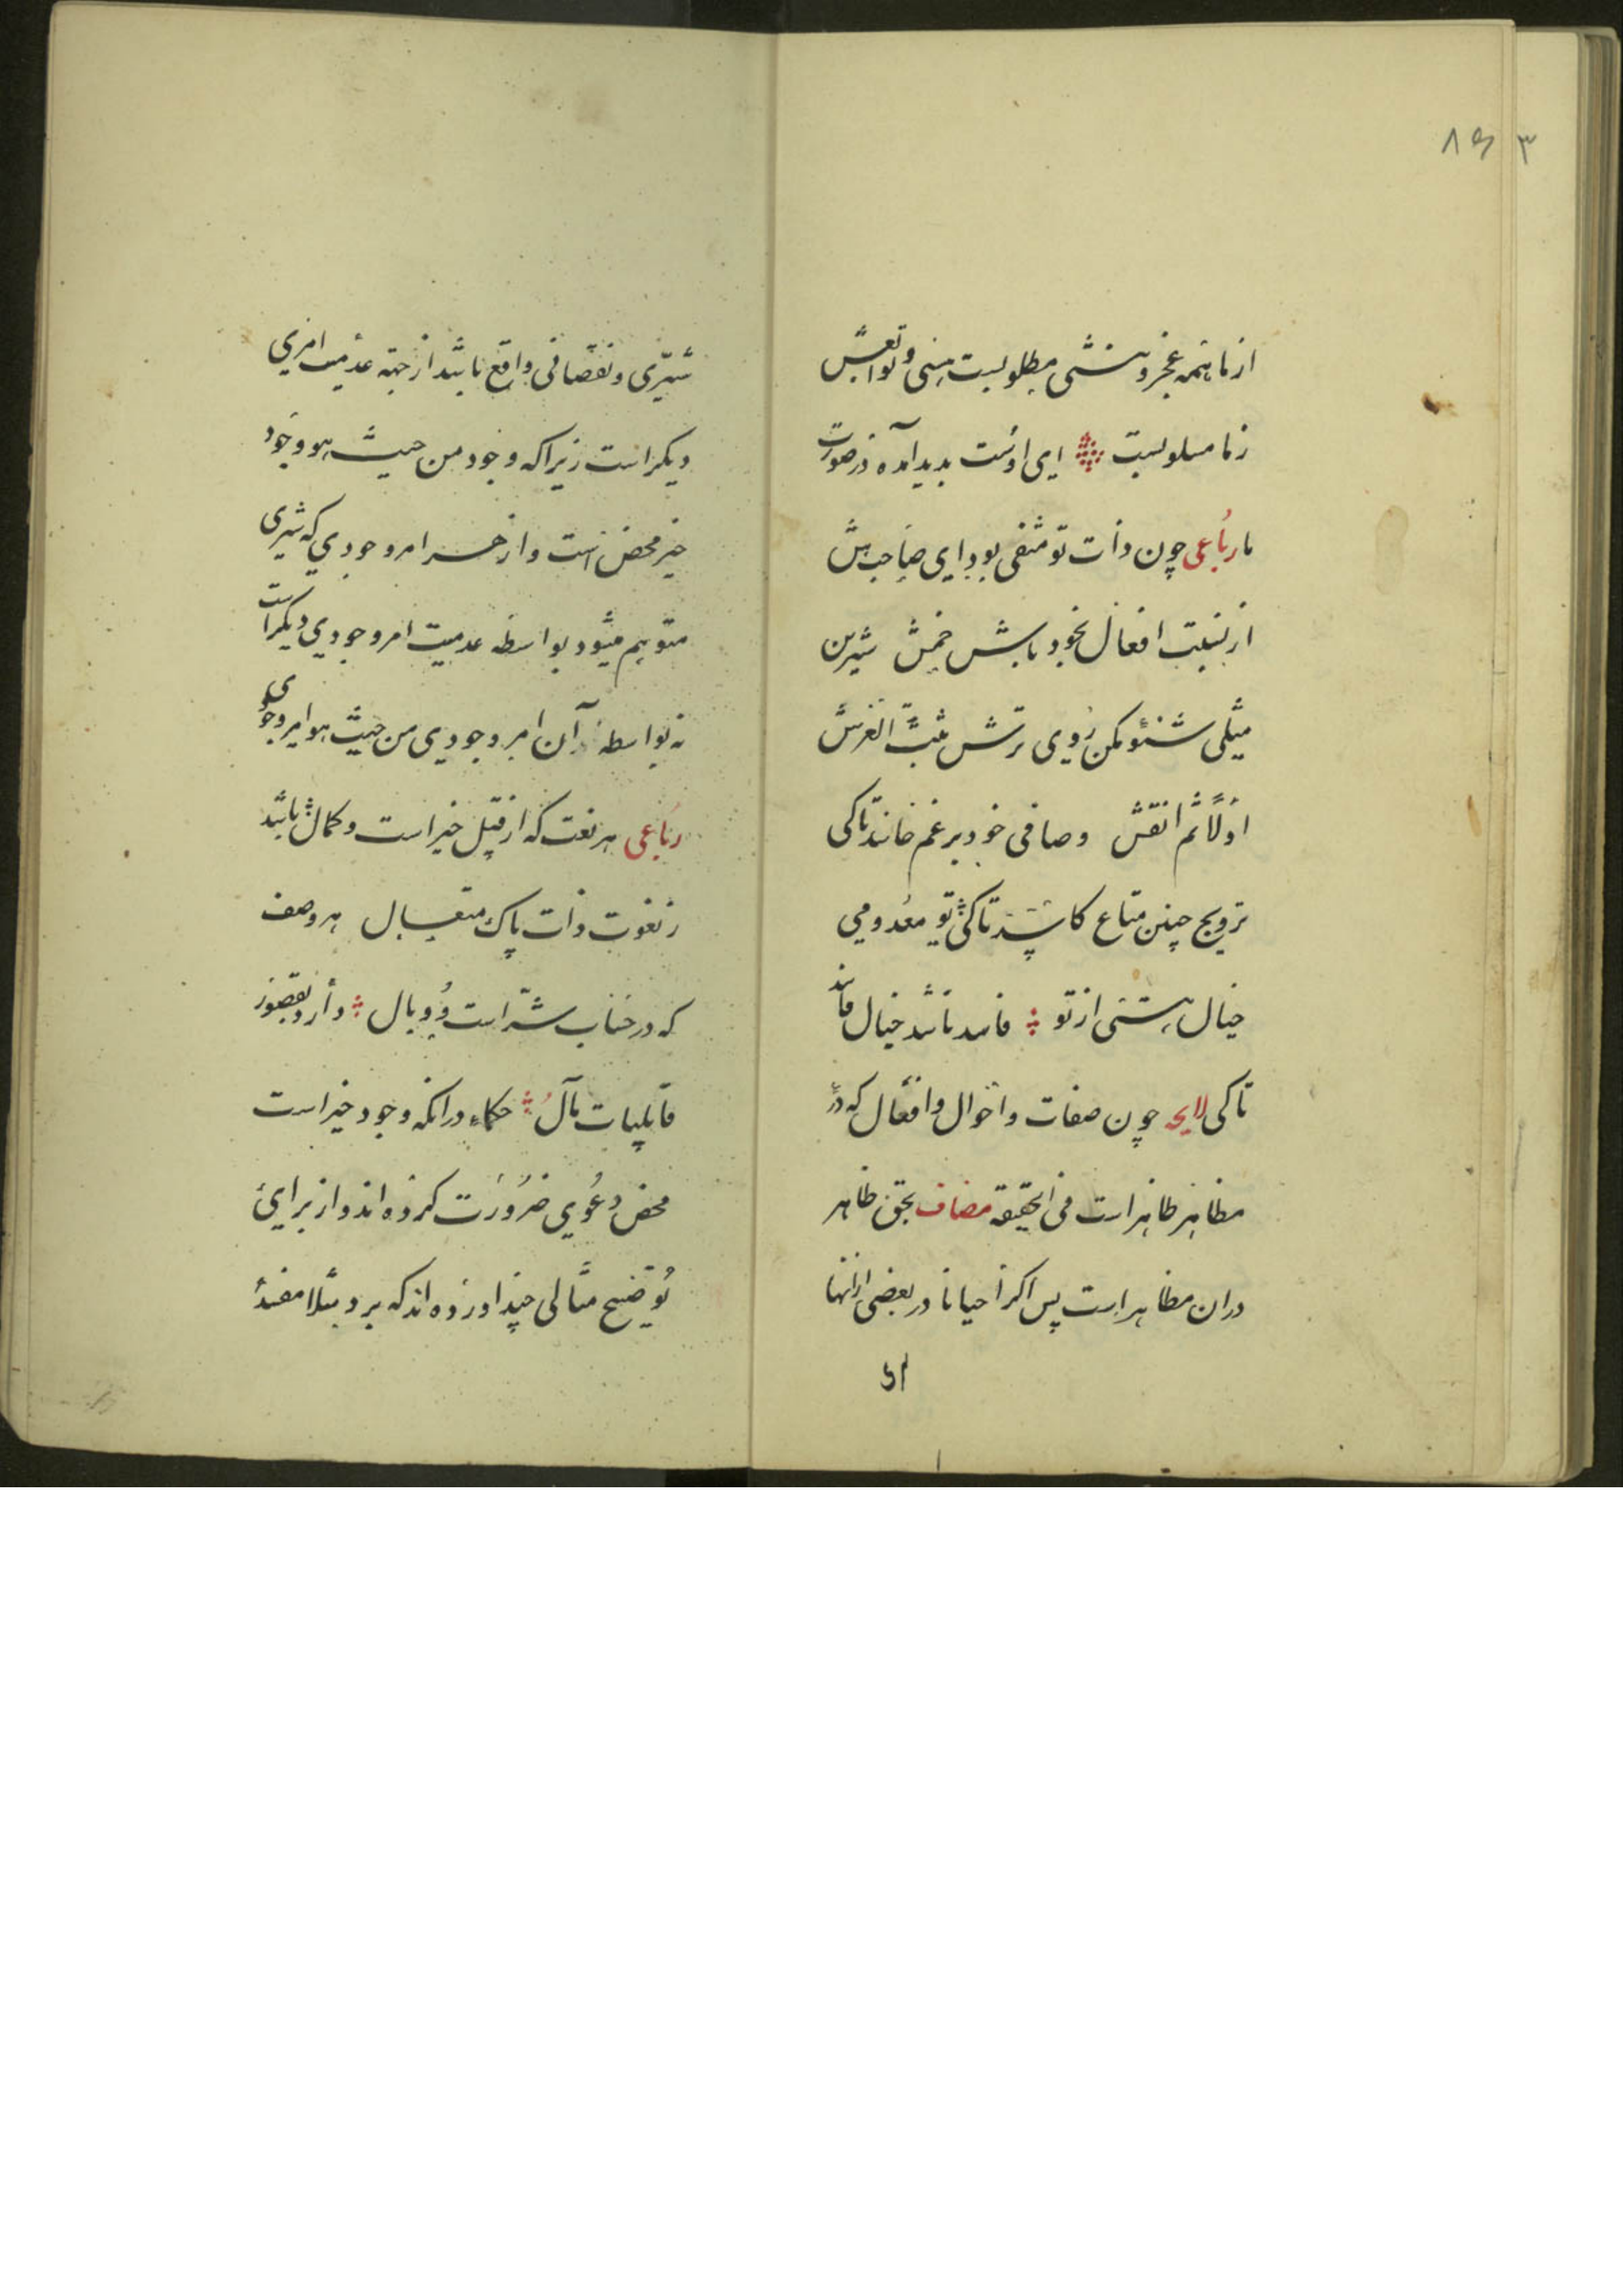 ۸۶ ۳
از ما همه عجز و نیستی مطلوبست هستی و توابعش
زما مسلوبست ای اوست بدید آمده در صورت
ما رباعی چون ذات تو منفی بود ای صاحب هش
از نسبت افعال بخود باش خمش شیرین
مثلی شنو مکن روی ترش ثبت العرش
اولاً ثم انقش وصافی خود برغم حاسد تا کی
ترویج چنین متاع کاسد تا کی تو معدومی
خیال هستی از تو فاسد باشد خیال فاسد
تا کی لایحه چون صفات و احوال و افعال که در
مظاهر ظاهر است فی الحقیقة مضاف بحق ظاهر
دران مظاهر است پس اکر احیانا در بعضی ازانها
شرّی و نقصانی واقع باشد از جهة عدمیت امری
دیکر است زیرا که وجود من حیث هو وجود
خیر محض است و از هر امر وجودی که شری
متوهم میشود بواسطه عدمیت امر وجودی دیکر است
نه بواسطهٔ آن امر وجودی من حیث هو امر وجودی
رباعی هر نعت که از قبیل خیر است و کمال باشد
ز نعوت ذات پاک متعال هر وصف
که در حساب شرّ است و وبال دارد بقصور
قابلیات مآل حکماء درانکه وجود خیر است
محض دعوی ضرورت کرده اند و از برای
توضیح مثالی چند اورده اند که برد مثلا مفسد